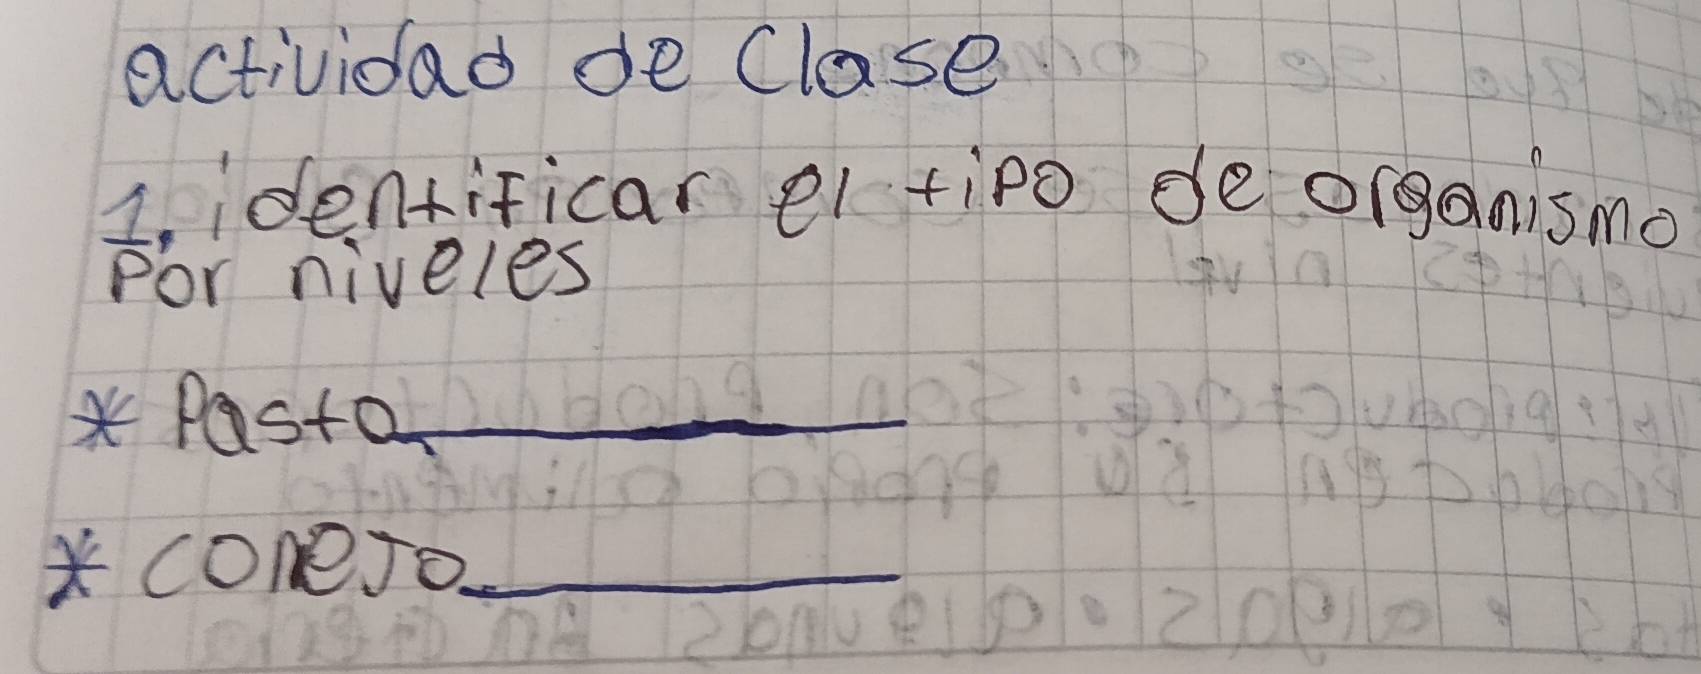 actividad de Clase
1. identificar el tipo de organismo
Por niveles
* Pasto
* conejo